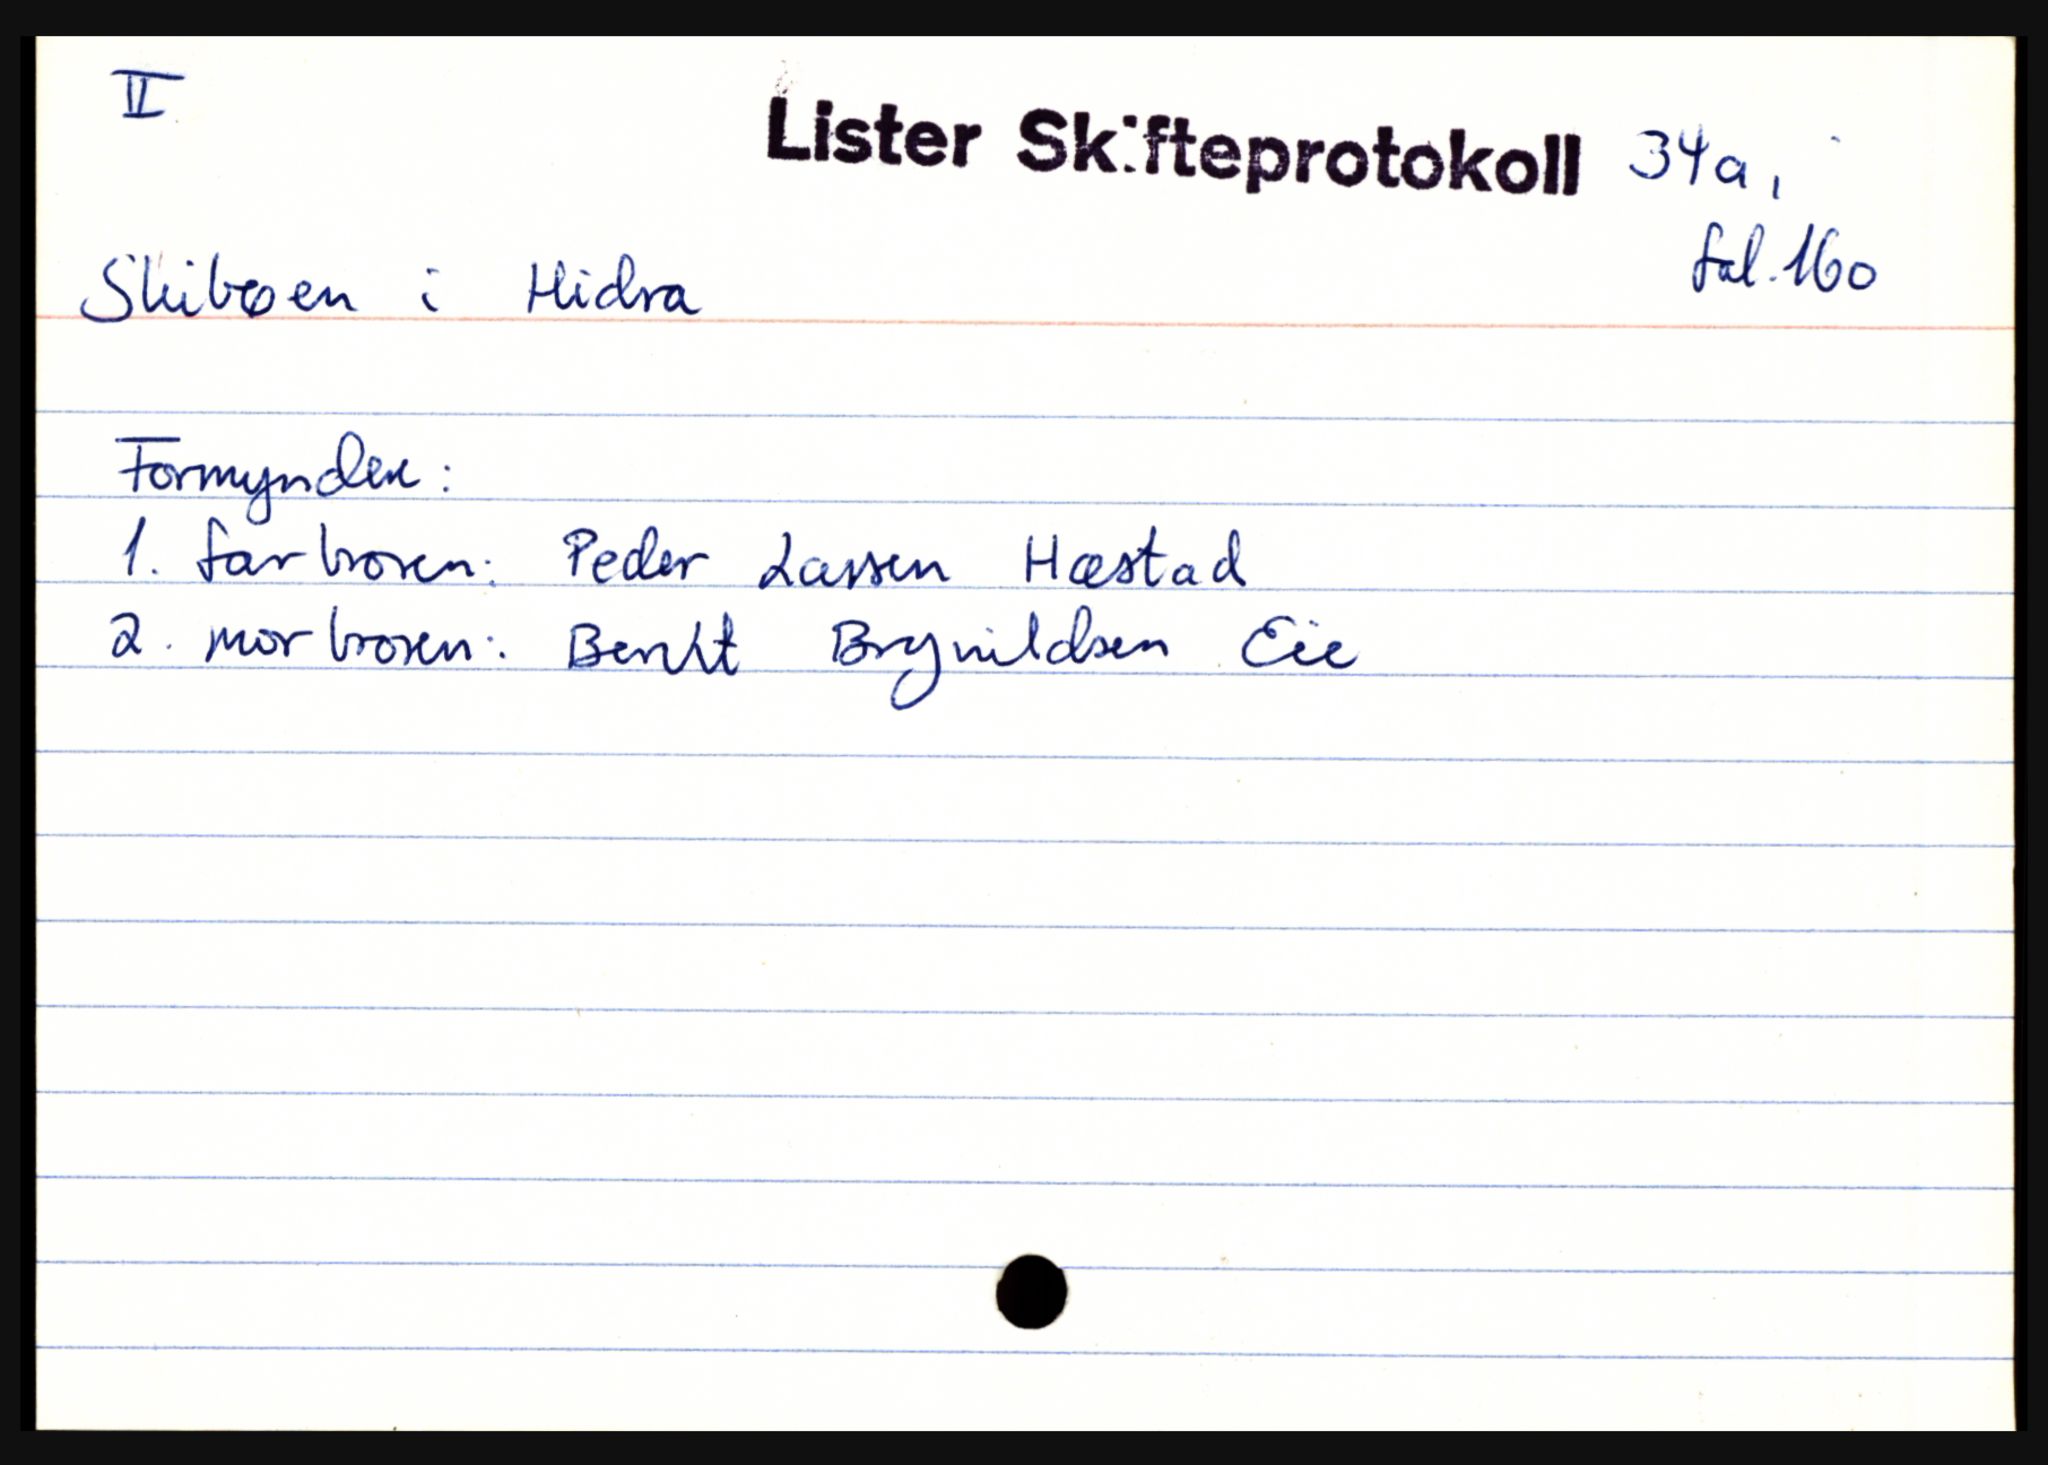 II
Lister Skifteprotokoll 34a,
fol. 160
Skibøen i Hidra
Formyndere:
1. farbroren: Peder Larsen Hæstad
2. morbroren: Berent Brynildsen Eie